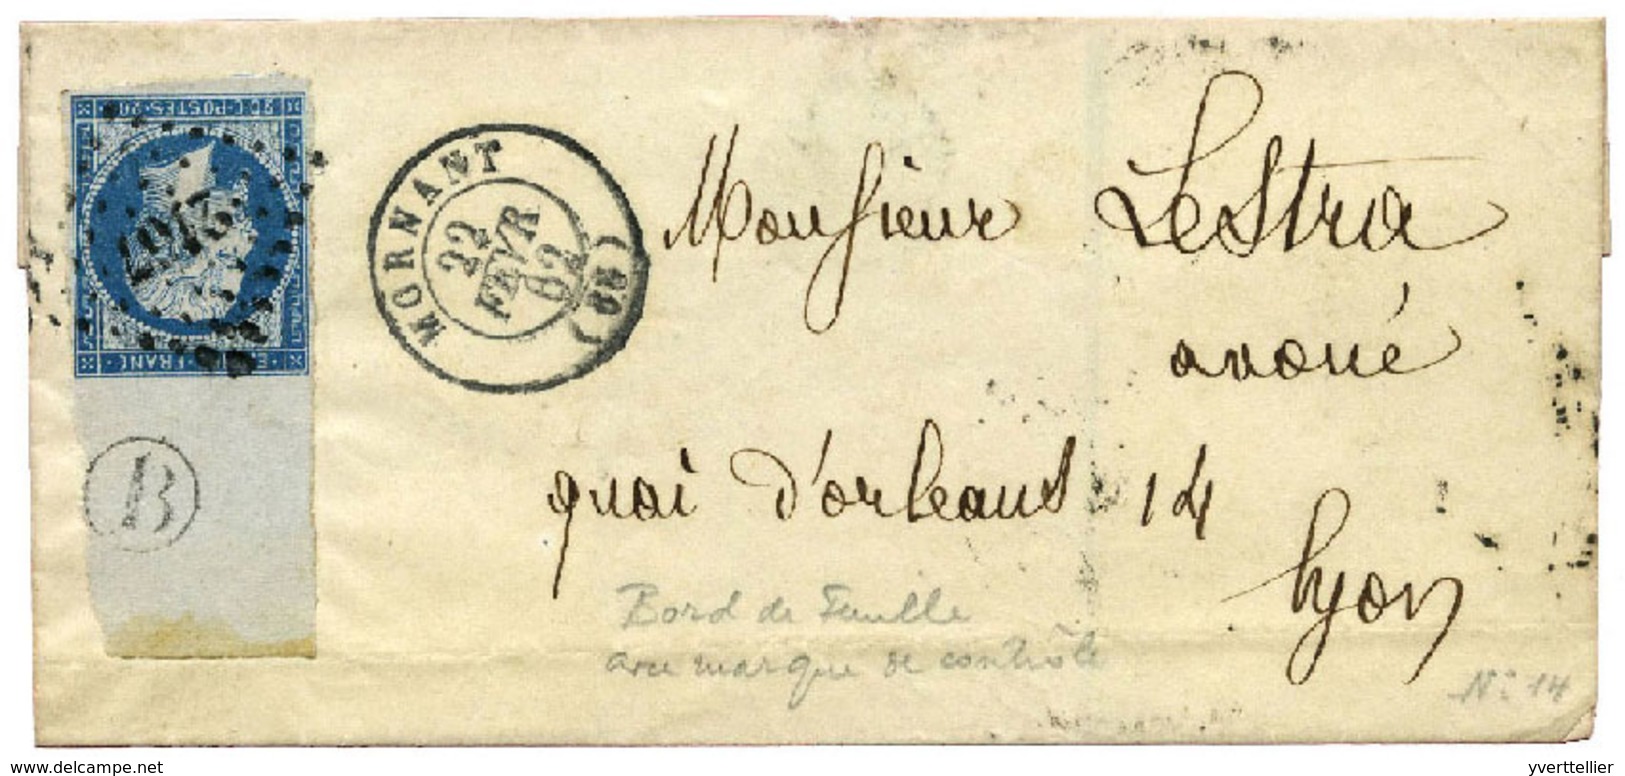 20 c. POSTES 20
FRANC
B
MORNANT
22
FEVR
62
(68)
Monsieur Lestra
avoué
quai d'orleans 14
Lyon
Bord de Feuille
avec marque de contrôle
N° 14
www.delcampe.net
yverttellier